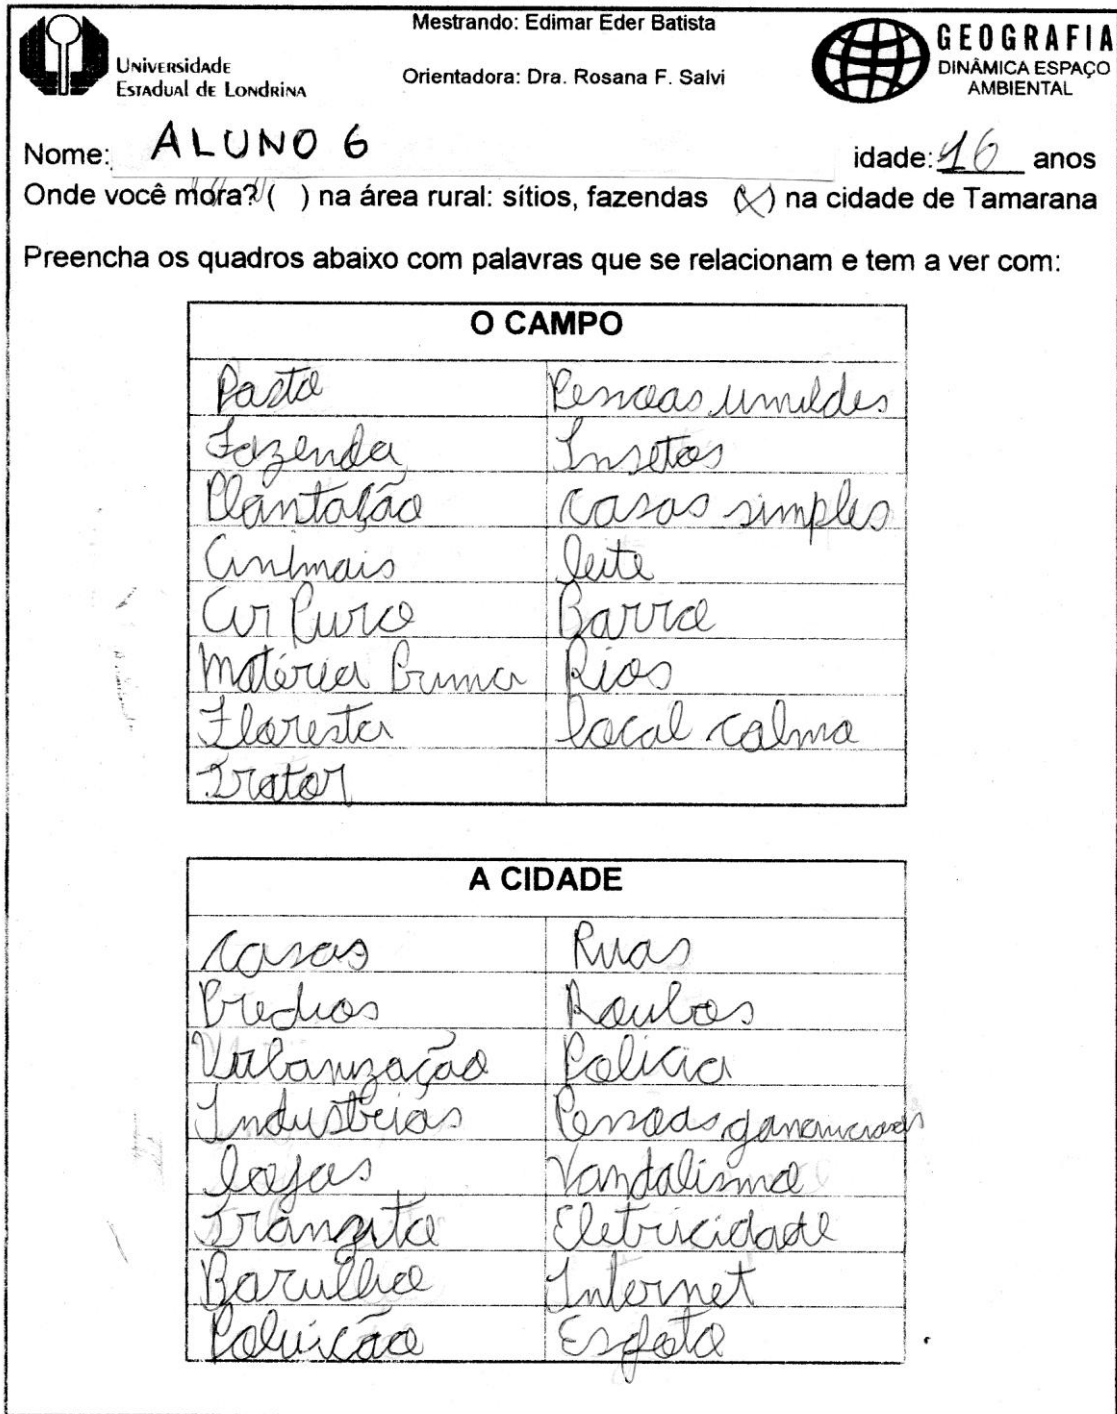 Mestrando: Edimar Eder Batista
UNIVERSIDADE
ESTADUAL DE LONDRINA
Orientadora: Dra. Rosana F. Salvi
GEOGRAFIA
DINÂMICA ESPAÇO
AMBIENTAL
Nome: ALUNO 6 idade: 16 anos
Onde você mora? ( ) na área rural: sítios, fazendas (X) na cidade de Tamarana
Preencha os quadros abaixo com palavras que se relacionam e tem a ver com:
O CAMPO
Pasto Pessoas umildes
Fazenda Insetos
Plantação casas simples
Animais leite
Ar Puro Barro
Matéria Prima Rios
Floresta local calmo
Trator
A CIDADE
casas Ruas
Predios Roubos
Urbanização Policia
Industrias Pessoas gananciosas
lojas Vandalismo
Tranzito Eletricidade
Barulho Internet
Poluição Esgoto